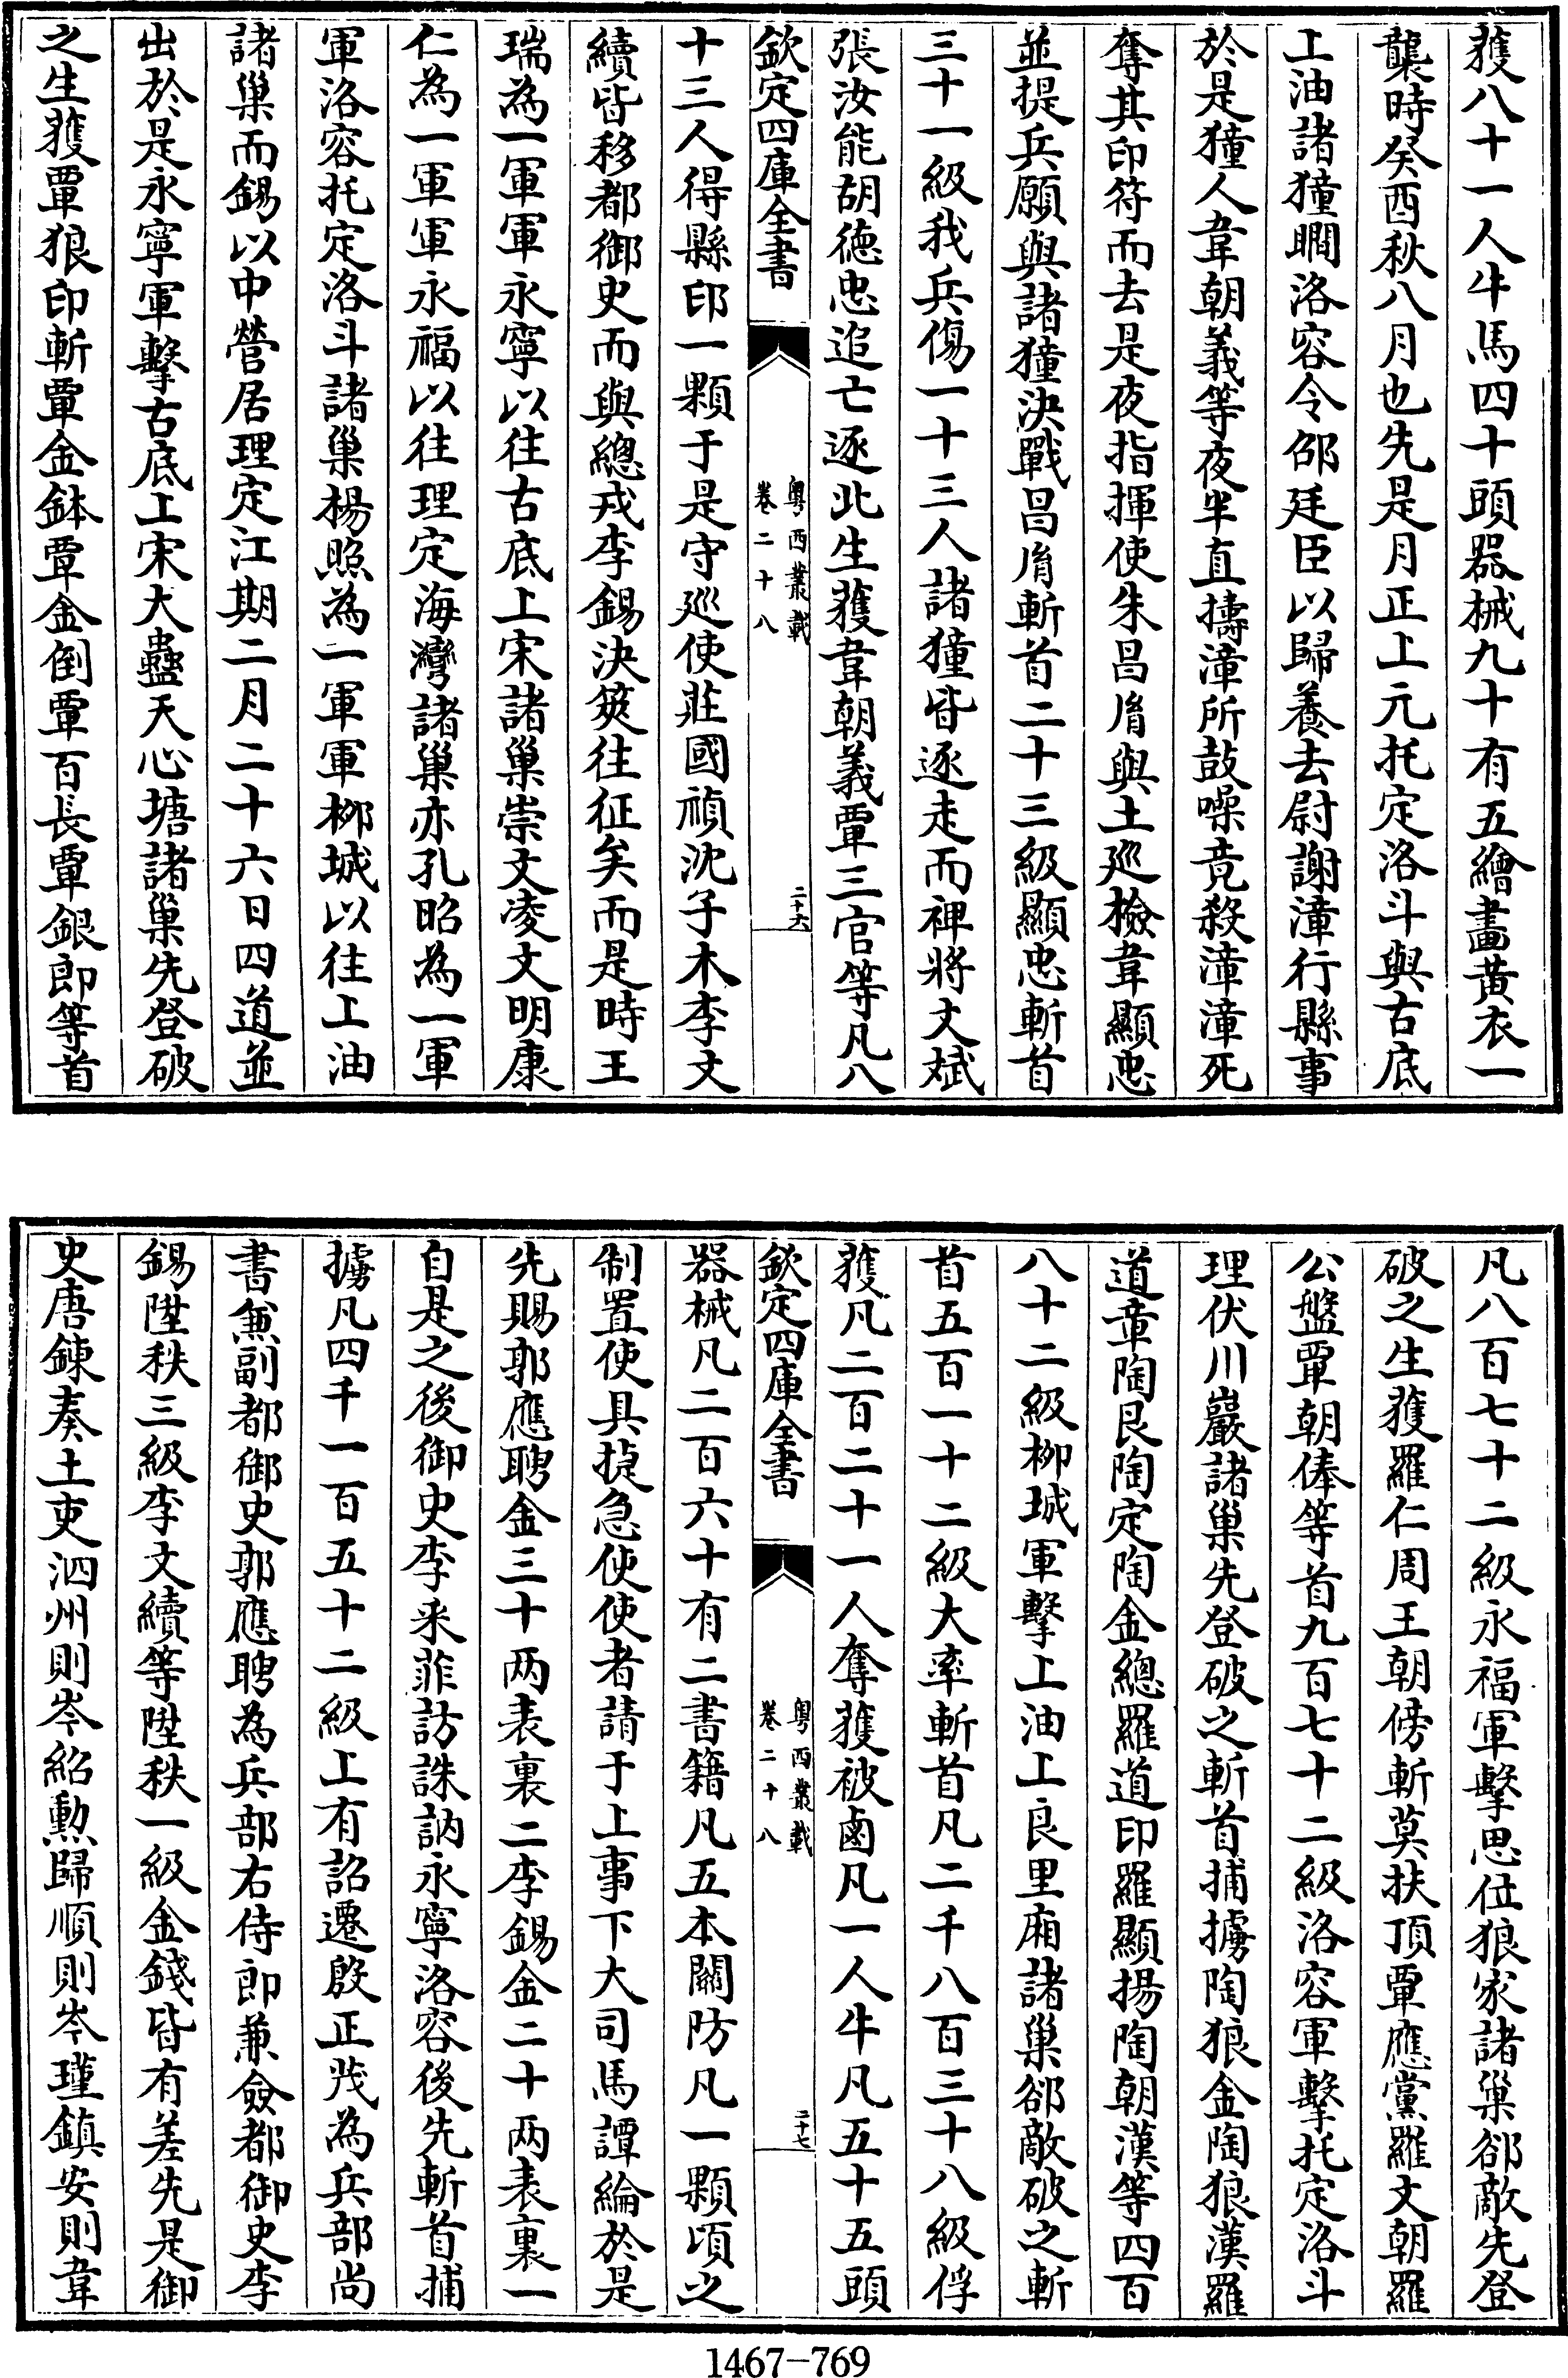 獲八十一人牛馬四十頭器械九十有五繪畫黃衣一
襲時癸酉秋八月也先是月正上元托定洛斗與古底
上油諸獞瞷洛容令邵廷臣以歸養去尉謝漳行縣事
於是獞人韋朝義等夜半直擣漳所鼓噪竟殺漳漳死
奪其印符而去是夜指揮使朱昌胤與土巡檢韋顯忠
並提兵願與諸獞決戰昌胤斬首二十三級顯忠斬首
三十一級我兵傷一十三人諸獞皆逐走而裨將文斌
張汝能胡德忠追亡逐北生獲韋朝義覃三官等凡八
欽定四庫全書
粤西叢載
卷二十八
二十六
十三人得縣印一顆于是守巡使莊國禎沈子木李文
續皆移都御史而與總戎李錫決筴往征矣而是時王
瑞為一軍軍永寧以往古底上宋諸巢崇文凌文明康
仁為一軍軍永福以往理定海灣諸巢亦孔昭為一軍
軍洛容托定洛斗諸巢楊照為一軍軍柳城以往上油
諸巢而錫以中營居理定江期二月二十六日四道並
出於是永寧軍擊古底上宋大蠱天心塘諸巢先登破
之生獲覃狼印斬覃金鉢覃金倒覃百長覃銀郎等首
凡八百七十二級永福軍擊思位狼家諸巢郤敵先登
破之生獲羅仁周王朝傍斬莫扶頂覃應黨羅文朝羅
公盤覃朝俸等首九百七十二級洛容軍擊托定洛斗
理伏川巖諸巢先登破之斬首捕擄陶狼金陶狼漢羅
道章陶艮陶定陶金總羅道印羅顯揚陶朝漢等四百
八十二級柳城軍擊上油上良里廂諸巢郤敵破之斬
首五百一十二級大率斬首凡二千八百三十八級俘
獲凡二百二十一人奪獲被鹵凡一人牛凡五十五頭
欽定四庫全書
粤西叢載
卷二十八
二十七
器械凡二百六十有二書籍凡五本關防凡一顆頃之
制置使具㨗急使使者請于上事下大司馬譚綸於是
先賜郭應聘金三十两表裏二李錫金二十两表裏一
自是之後御史李釆菲訪誅訥永寧洛容後先斬首捕
擄凡四千一百五十二級上有詔遷殷正茂為兵部尚
書兼副都御史郭應聘為兵部右侍郎兼僉都御史李
錫陞秩三級李文續等陞秩一級金錢皆有差先是御
史唐鍊奏土吏泗州則岑紹勲歸順則岑瑾鎮安則韋
1467-769